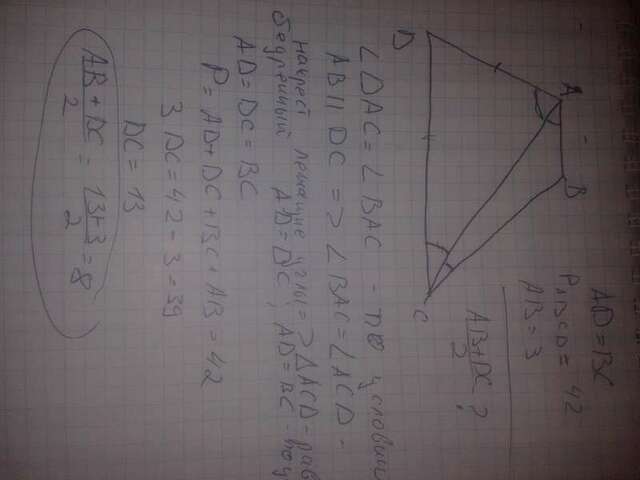 D
A
B
C
AD = BC
P ABCD = 42
AB = 3
AB + DC
2
?
∠DAC = ∠BAC - по условию
AB || DC => ∠BAC = ∠ACD -
накрест лежащие углы => ΔACD - рав
бедренный AD = DC, AD = BC -
AD = DC = BC
P = AD + DC + BC + AB = 42
3 DC = 42 - 3 = 39
DC = 13
AB + DC / 2 = 13 + 3 / 2 = 8